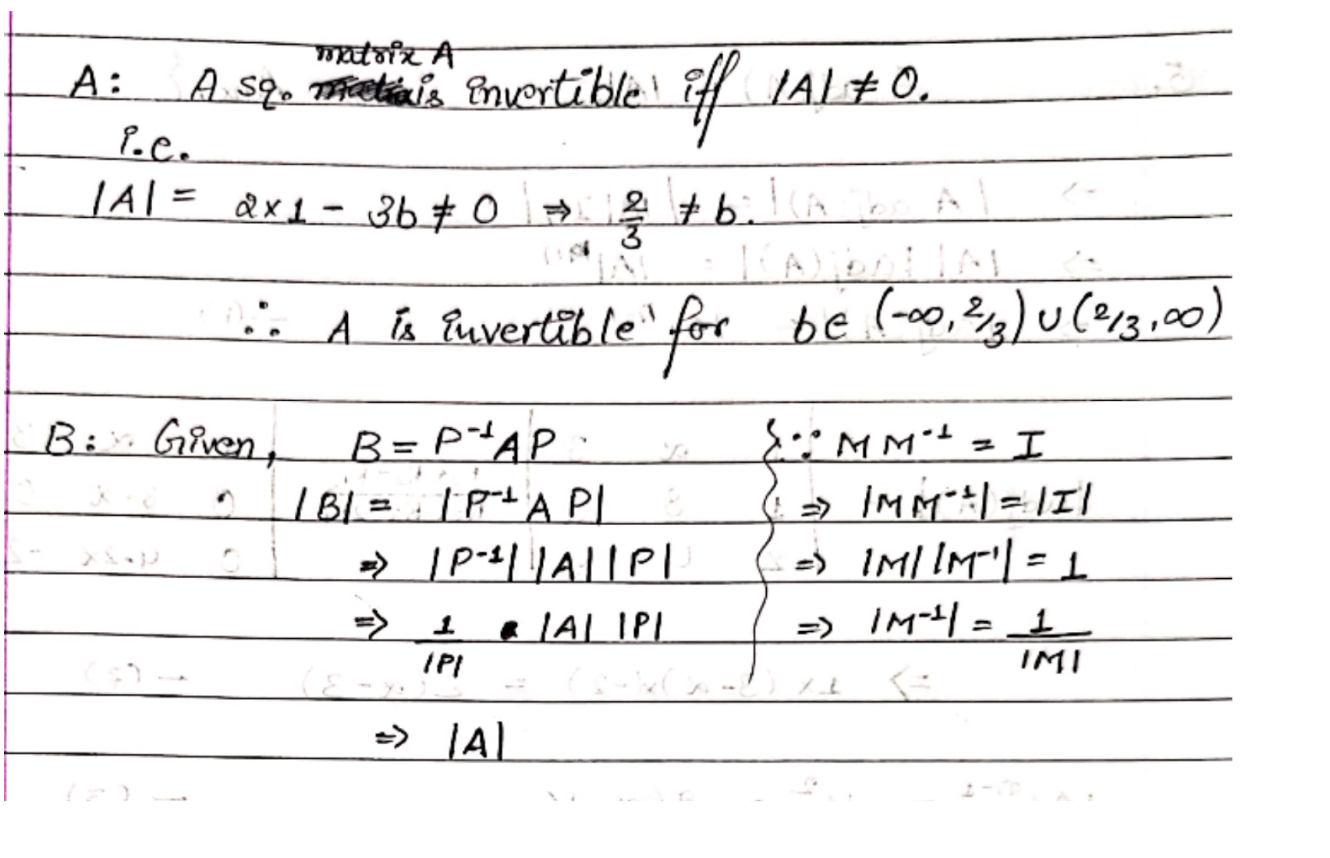 A: A sq. matrix A is invertible iff |A| ≠ 0.
i.e.
|A| = 2x1 - 3b ≠ 0 ⇒ 2/3 ≠ b.
∴ A is invertible for b ∈ (-∞, 2/3) ∪ (2/3, ∞)
B: Given, B = P⁻¹AP {∵ MM⁻¹ = I
|B| = |P⁻¹AP| ⇒ |MM⁻¹| = |I|
⇒ |P⁻¹| |A| |P| ⇒ |M| |M⁻¹| = 1
⇒ 1/|P| · |A| |P| ⇒ |M⁻¹| = 1/|M|
⇒ |A|